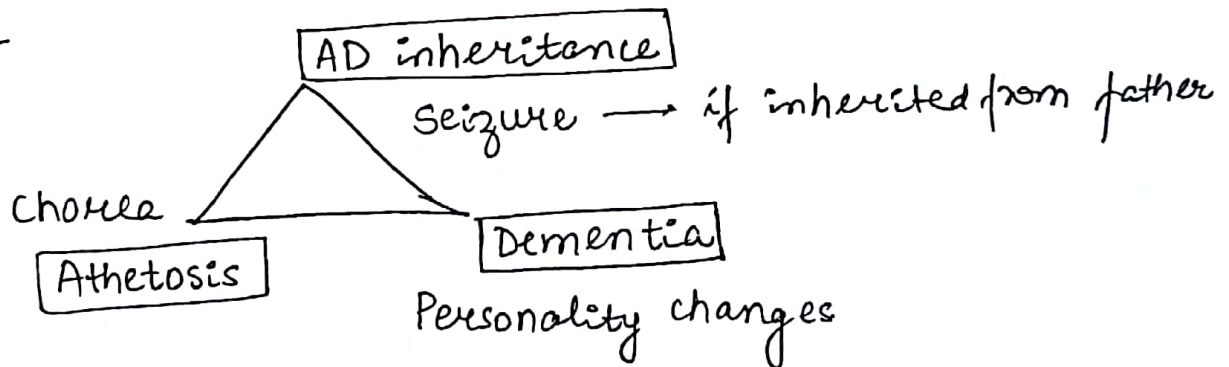 AD inheritance
Seizure → if inherited from father
Chorea
Athetosis
Dementia
Personality changes